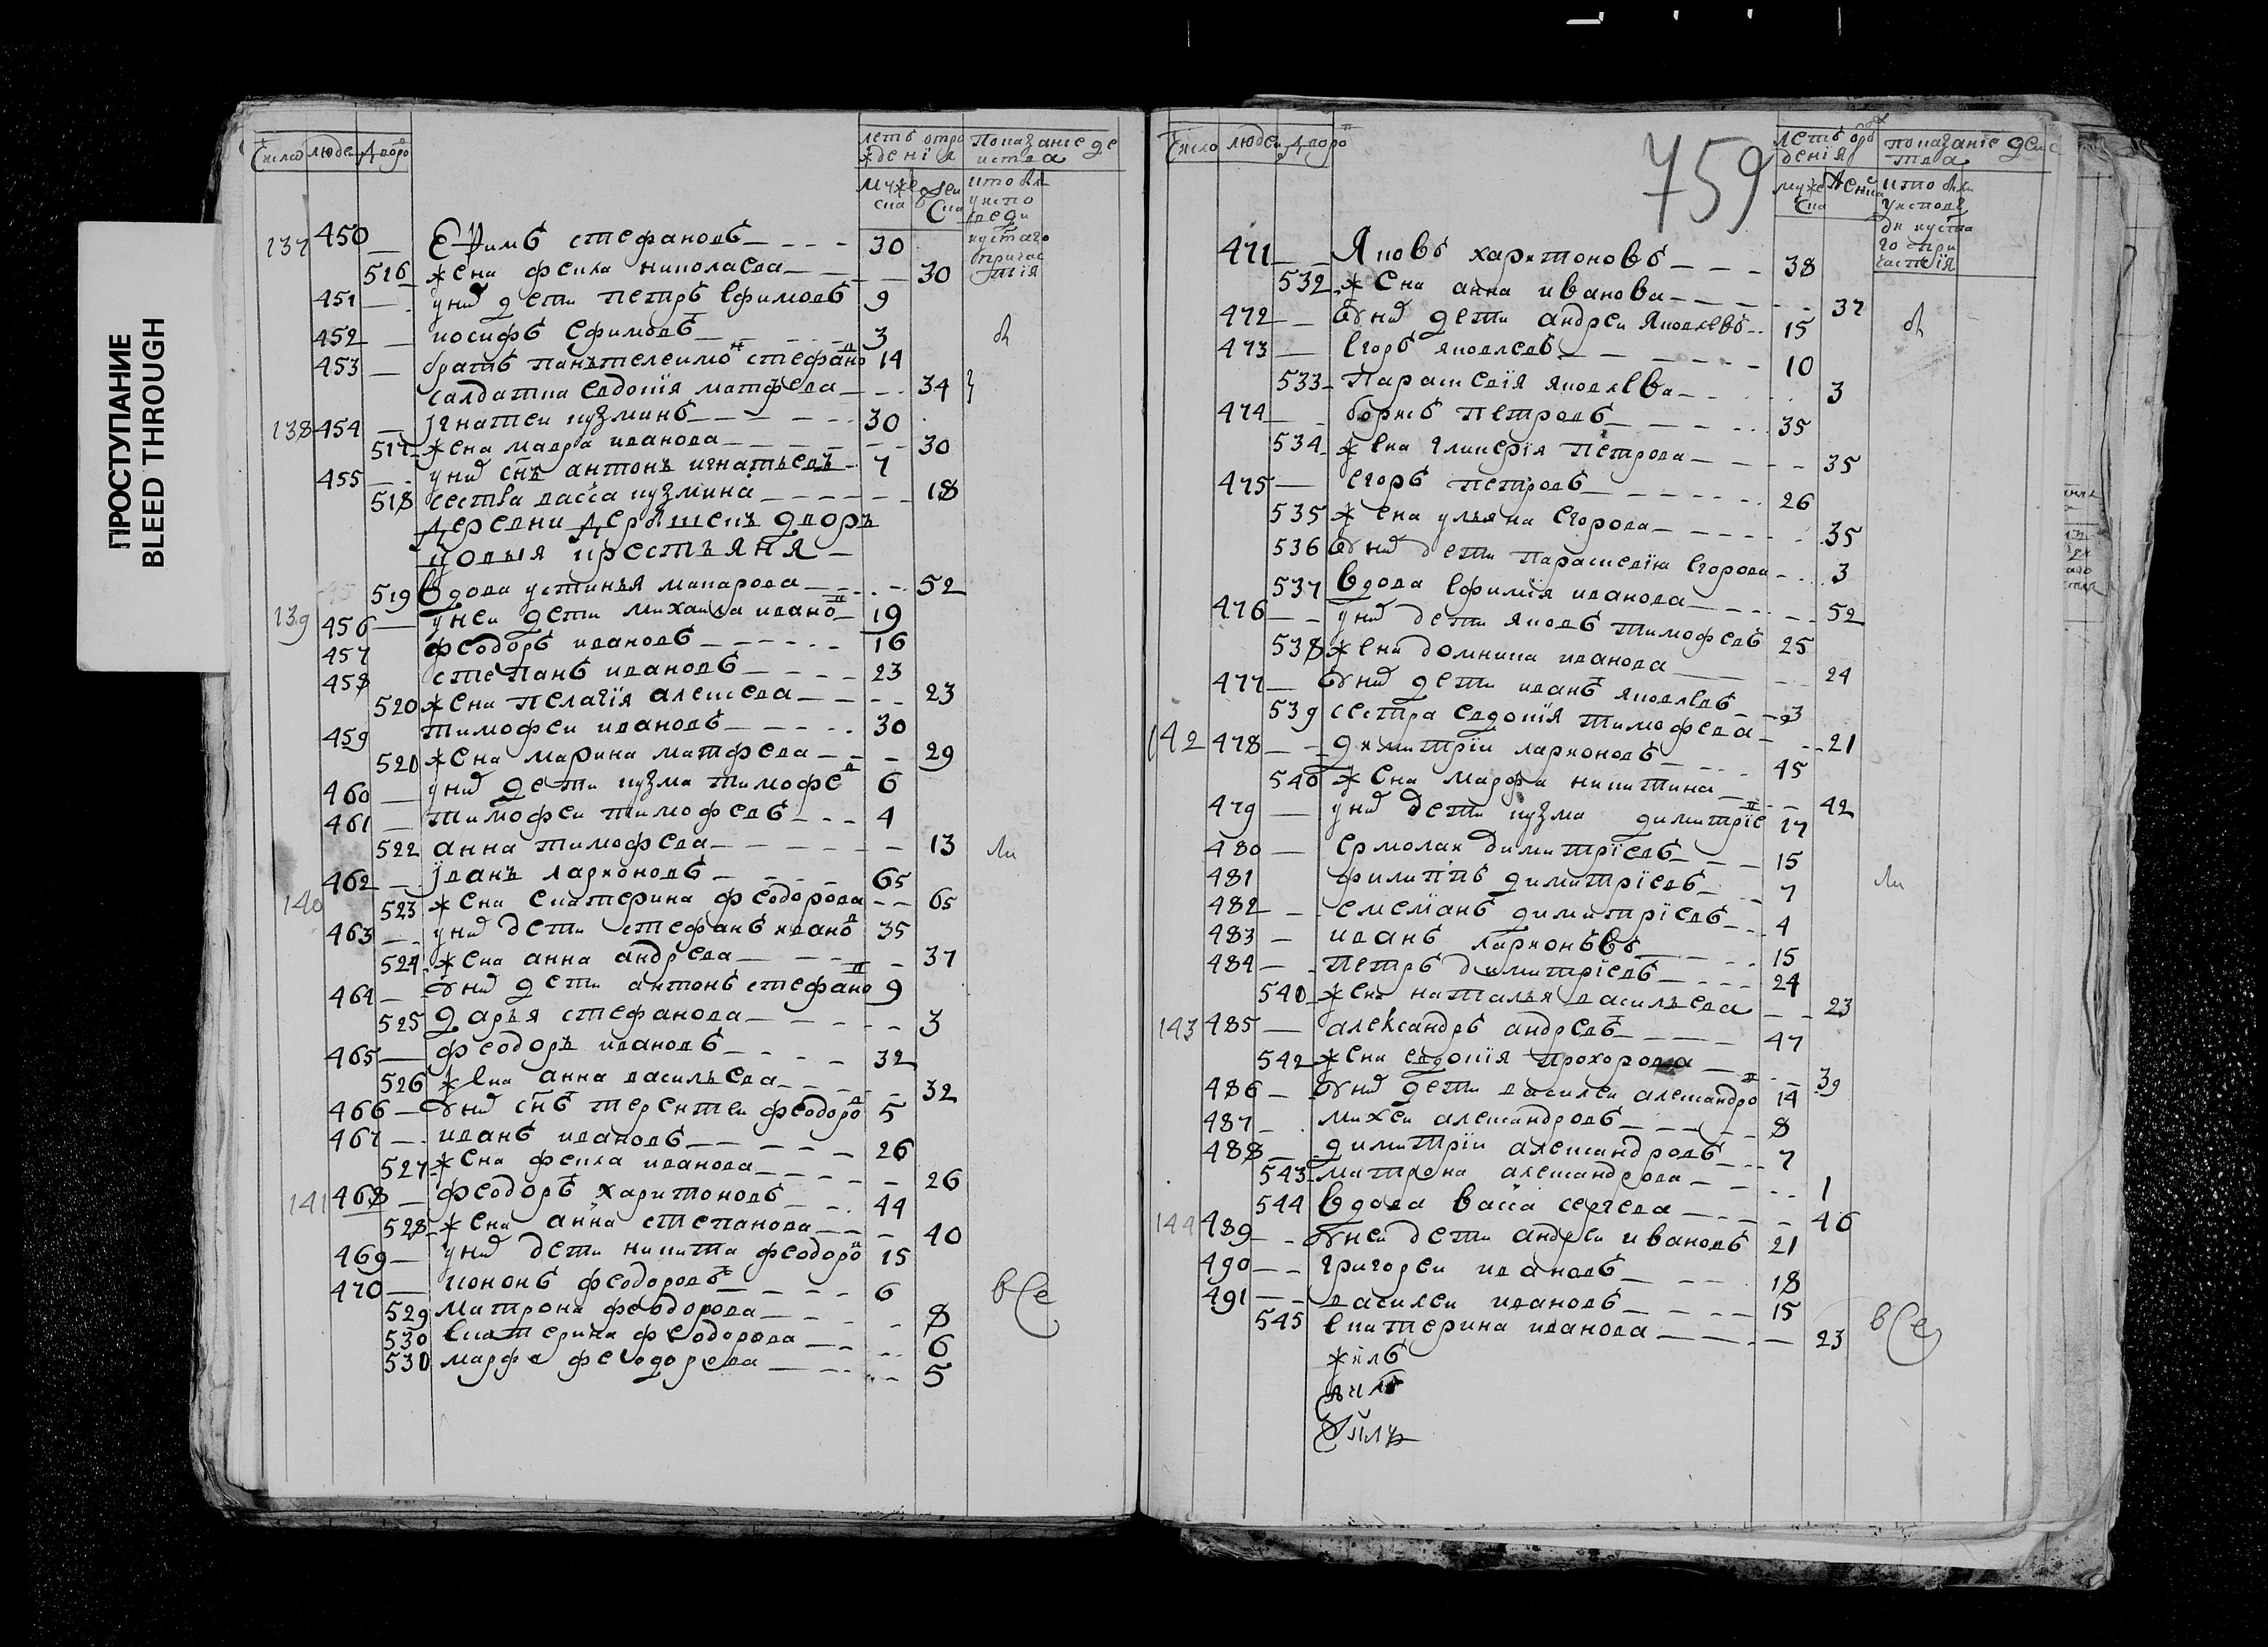 ПРОСТУПАНИЕ
BLEED THROUGH
Число людеи дворо
летъ отро
жденїя
Показанїе де
иства
муже
ска
женска
кто был
у испо
веди
450 Ефимъ стефановъ 30
516 жена фекла николаева 30
451 у нив дети петръ ефимовъ 9
452 иосифъ ефимовъ 3
453 братъ панътелеимон стефано 14
салдатка евдокїя матфеева 34
138 454 игнатеи кузминъ 30
517 жена мавра иванова 30
455 у нив снъ антонъ игнатьевъ 7
518 сества васса кузмина 18
деревни дворъ
цовыя крестьяня
519 вдова устинья макарова 52
139 456 у неи дети михаила ивано 19
457 феодоръ ивановъ 16
458 степанъ ивановъ 23
520 жена пелагїя алексеева 23
459 тимофеи ивановъ 30
521 жена марина матфеева 29
460 у нив дети кузма тимофе 6
461 тимофеи тимофеевъ 4
522 анна тимофеева 13
ли
462 иванъ ларионовъ 65
140 523 жена екатерина феодорова 65
463 у нив дети стефанъ ивано 35
524 жена анна андреева 37
464 у нив дети антонъ стефано 9
525 дарья стефанова 3
465 феодоръ ивановъ 32
526 жена анна васильева 32
466 у нив снъ терентеи феодоро 5
467 иванъ ивановъ 26
527 жена фекла иванова 26
141 468 феодоръ харитоновъ 44
528 жена анна степанова 40
469 у нив дети никита феодоро 15
470 кононъ феодоровъ 6
все
529 матрона феодорова 8
530 екатерина феодорова 6
531 марфа феодорева 5
759
Число людеи дворо
летъ оро
денїя
показанїе деис
тва
муже
ска
женска
кто был
у исповѣ
ди
471 Яковъ харитоновъ 38
532 жена анна иванова 37
472 у нив дети андреи яковлевъ 15
473 егоръ яковлевъ 10
533 Параскевїя яковлева 3
474 борисъ петровъ 35
534 жена гликерїя петрова 35
475 егоръ петровъ 26
535 жена ульяна егорова 35
536 у нив дети параскевїя егорова 3
537 вдова ефимїя иванова 52
476 у нив дети яковъ тимофеевъ 25
538 жена домника иванова 24
477 у нив дети иванъ яковлевъ 3
539 сестра евдокїя тимофеева 21
142 478 димитрїи ларионовъ 45
540 жена марфа никитина 42
479 у нив дети кузма димитрїе 17
480 ермолаи димитрїевъ 15
481 филиппъ димитрїевъ 7
ли
482 емелїанъ димитрїевъ 4
483 иванъ ларионъвъ 15
484 петръ димитрїевъ 24
541 жена наталья васильева 23
143 485 александръ андреевъ 47
542 жена евдокїя прохорова 39
486 у нив дети василеи александро 14
487 михеи александровъ 8
488 димитрїи александровъ 7
543 матрона александрова 1
544 вдова васса сергеева 46
144 489 у неи дети андреи ивановъ 21
490 григореи ивановъ 18
491 василеи ивановъ 15
все
545 екатерина иванова 23